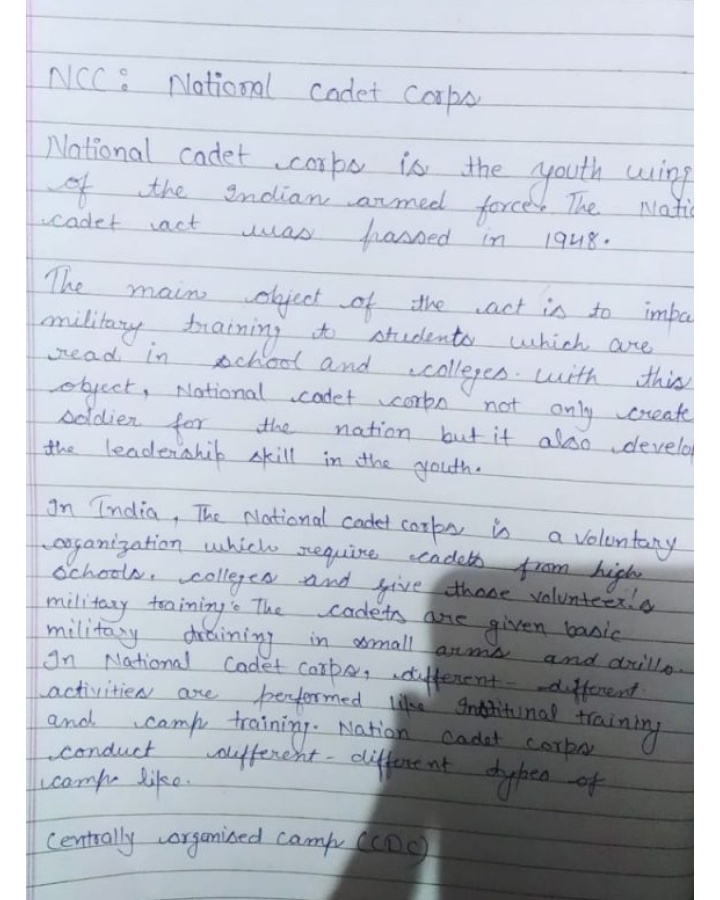 NCC: National Cadet Corps
National cadet corps is the youth wing
of the Indian armed force. The Natio
cadet act was passed in 1948.
The main object of the act is to impa
military training to students which are
read in school and colleges. with this
object, National cadet corps not only create
soldier for the nation but it also develop
the leadership skill in the youth.
In India, The National cadet corps is a voluntary
organization which require cadets from high
schools, colleges and give those volunteer's
military training. The cadets are given basic
military training in small arms and drills.
In National Cadet Corps, different - different
activities are performed like Institunal training
and camp training. Nation cadet corps
conduct different - different types of
camp like.
Centrally organised camp (CDC)